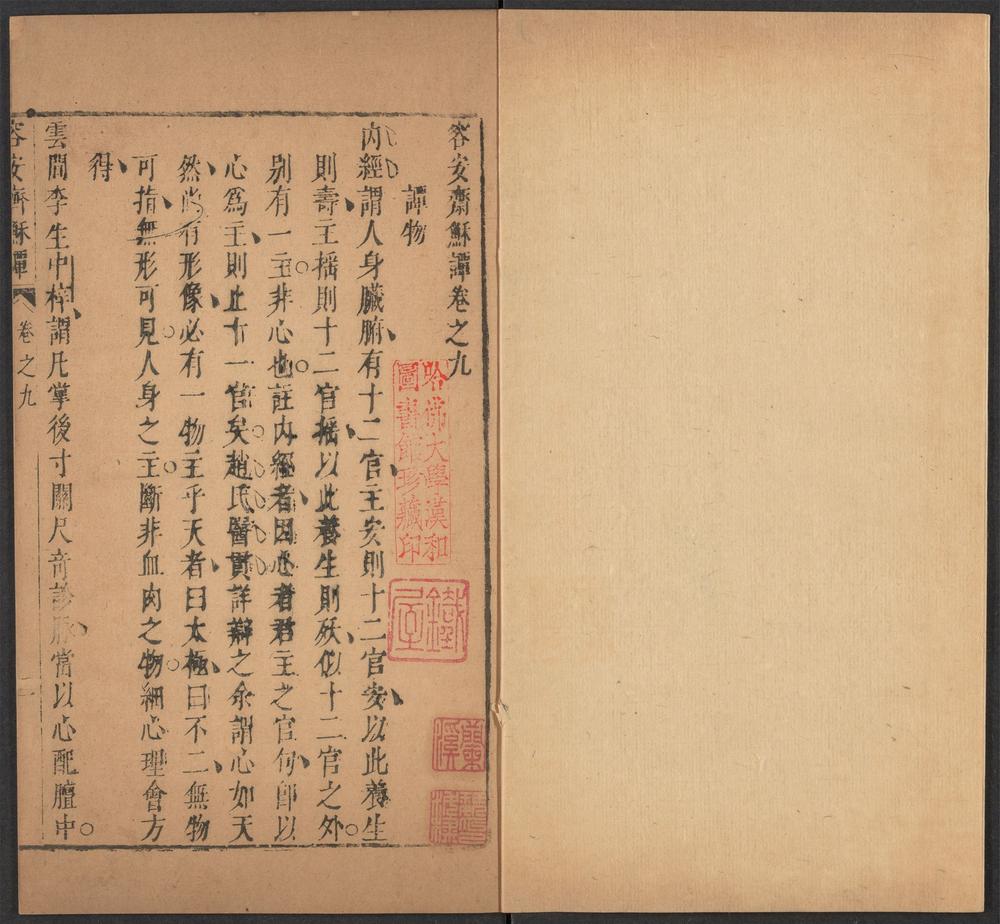 容安齋穌譚卷之九
譚物
內經謂人身臟腑有十二官主安則十二官安以此養生
則壽主揺則十二官揺以此養生則殀似十二官之外
别有一主非心也註内經者因心者君主之官句卽以
心爲主則止十一官矣趙氏醫貫詳辯之余謂心如天
然尚有形像必有一物主乎天者曰太極曰不二無物
可指無形可見人身之主斷非血肉之物細心理會方
得
雲間李生中梓謂凡掌後寸關尺竒診脈當以心配膻中
容安齋穌譚 卷之九 一
哈佛大學漢和
圖書館珍藏印